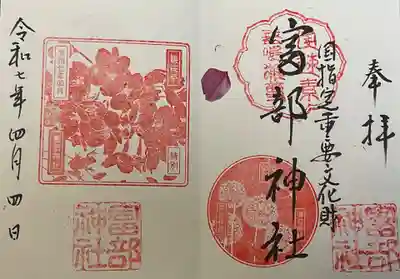 奉拝
国指定重要文化財
富部神社
富部
神社
令和七年四月四日
特別
富部
神社